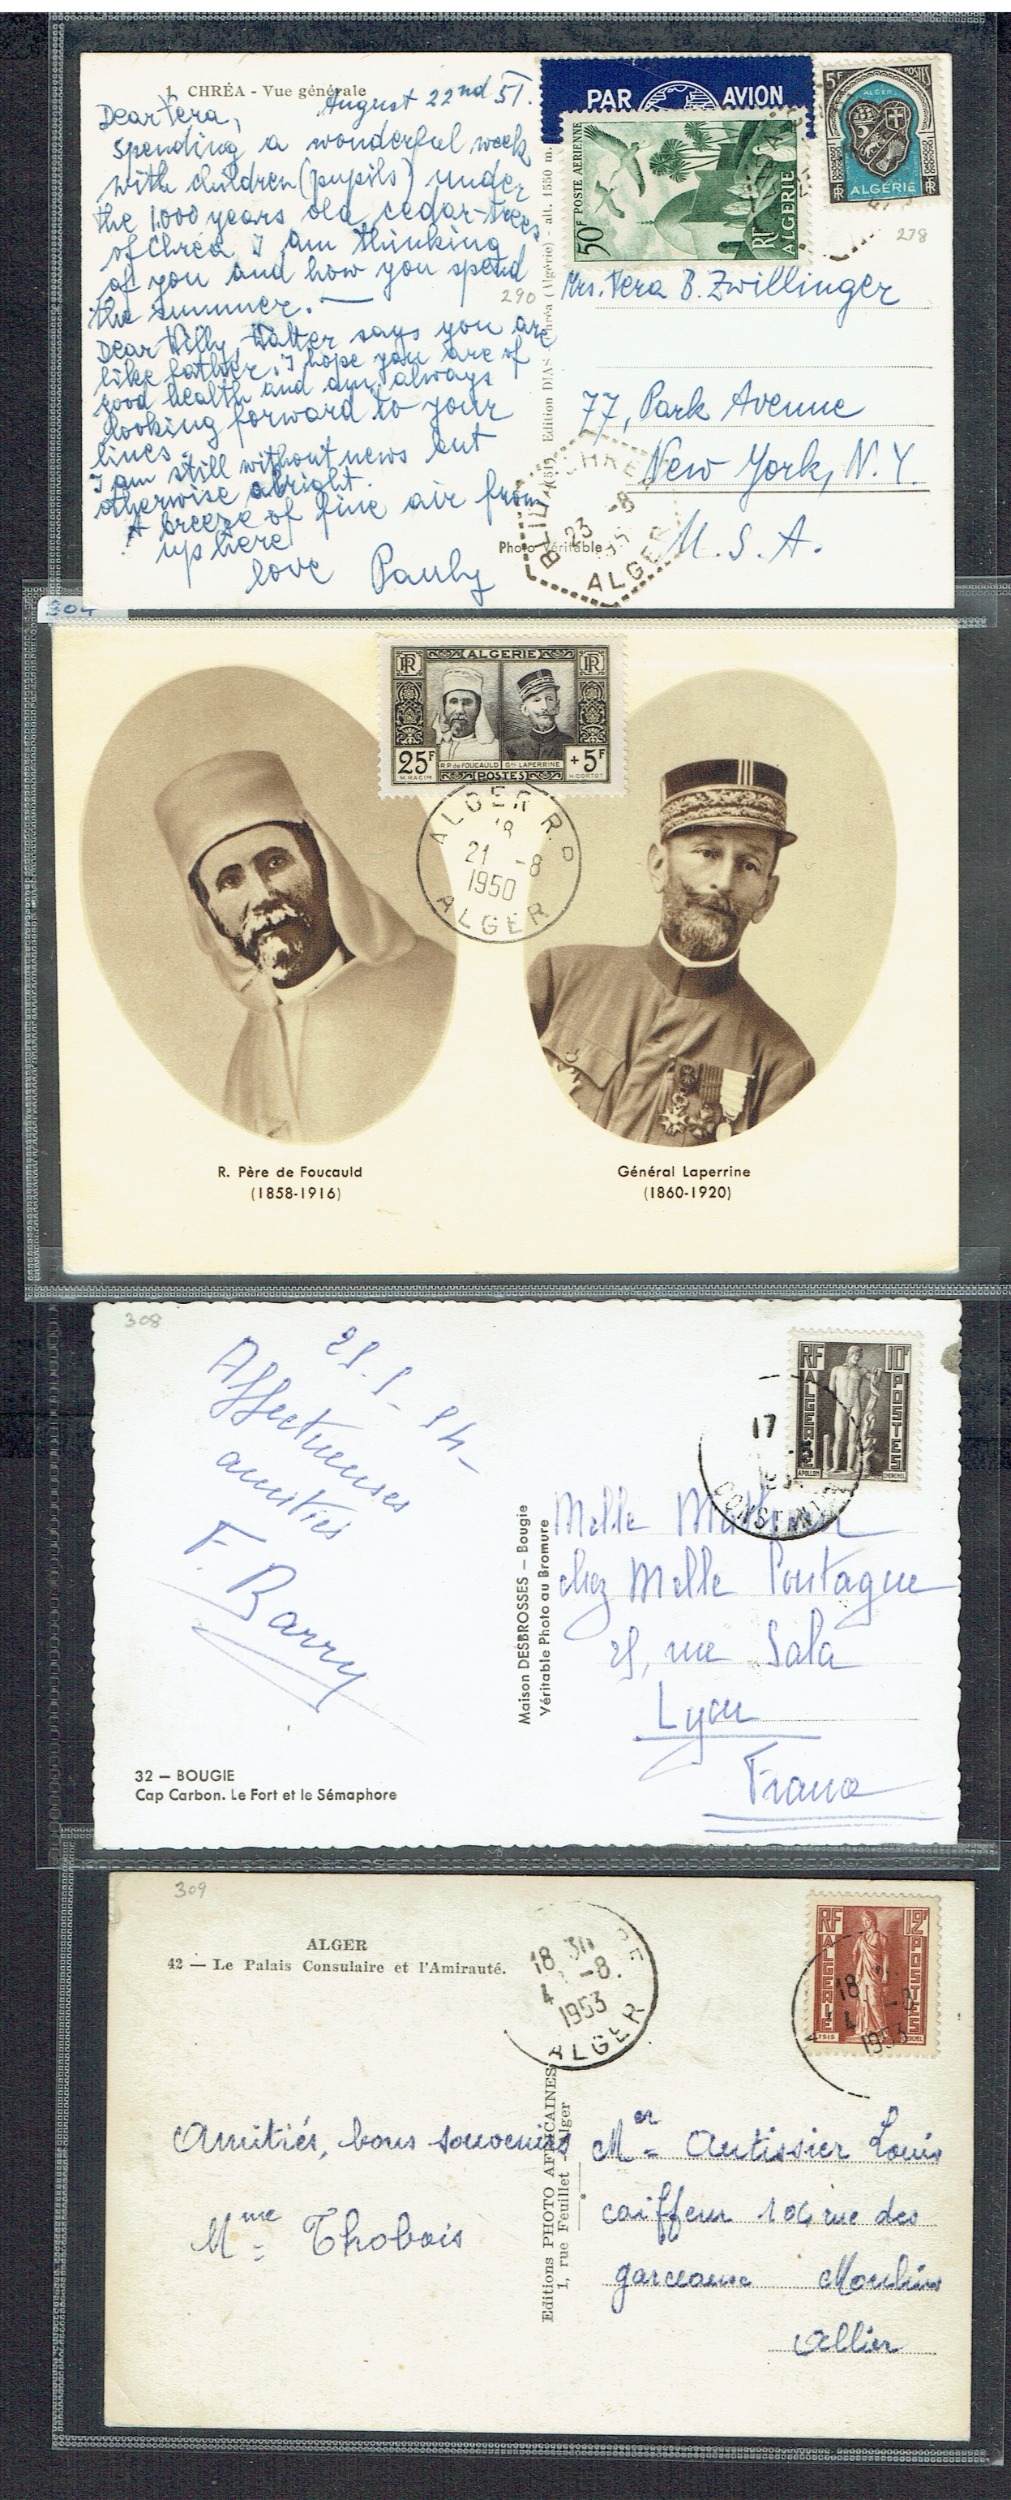 1. CHRÉA - Vue générale
August 22nd 51.
Dear Vera,
Spending a wonderful week
with children (pupils) under
the 1.000 years old cedar-trees
of Chréa I am thinking
of you and how you spend
the summer. —
Dear Willy, Walter says you are
like father. I hope you are of
good health and am always
looking forward to your
lines.
I am still without news but
otherwise alright.
A breeze of fine air from
up here
love Pauly
PAR AVION
50F POSTE AERIENNE
RF ALGÉRIE
5F POSTES
ALGER
ALGÉRIE
RF RF
278
290
Mrs. Vera B. Zwillinger
77, Park Avenue
New York, N.Y.
U.S.A.
Edition DIAS Chréa (Algérie) - alt. 1550 m.
Photo Véritable
CHRÉA
23 -8
ALGER
304
RF ALGERIE RF
25F R.P. de FOUCAULD Gal LAPERRINE +5F
M. RACIM POSTES H. CORTOT
ALGER R.P
18
21 -8
1950
ALGER
R. Père de Foucauld
(1858-1916)
Général Laperrine
(1860-1920)
308
Affectueuses
amitiés
F. Barry
RF 10F
ALGERIE POSTES
APOLLON CHERCHEL
17
CONSTANTINE
Melle
chez Melle Poutague
25, rue Sala
Lyon
France
Maison DESBROSSES — Bougie
Véritable Photo au Bromure
32 — BOUGIE
Cap Carbon. Le Fort et le Sémaphore
309
ALGER
42 — Le Palais Consulaire et l'Amirauté.
18 30
4 -8.
1953
ALGER
RF 12F
ALGERIE POSTES
ISIS CHERCHEL
18
4 -8
1953
Amitiés, bons souvenirs
Mme Thobois
Editions PHOTO AFRICAINES
1, rue Feuillet - Alger
Mer Autissier Louis
coiffeur 104 rue des
garceaux Moulins
Allier